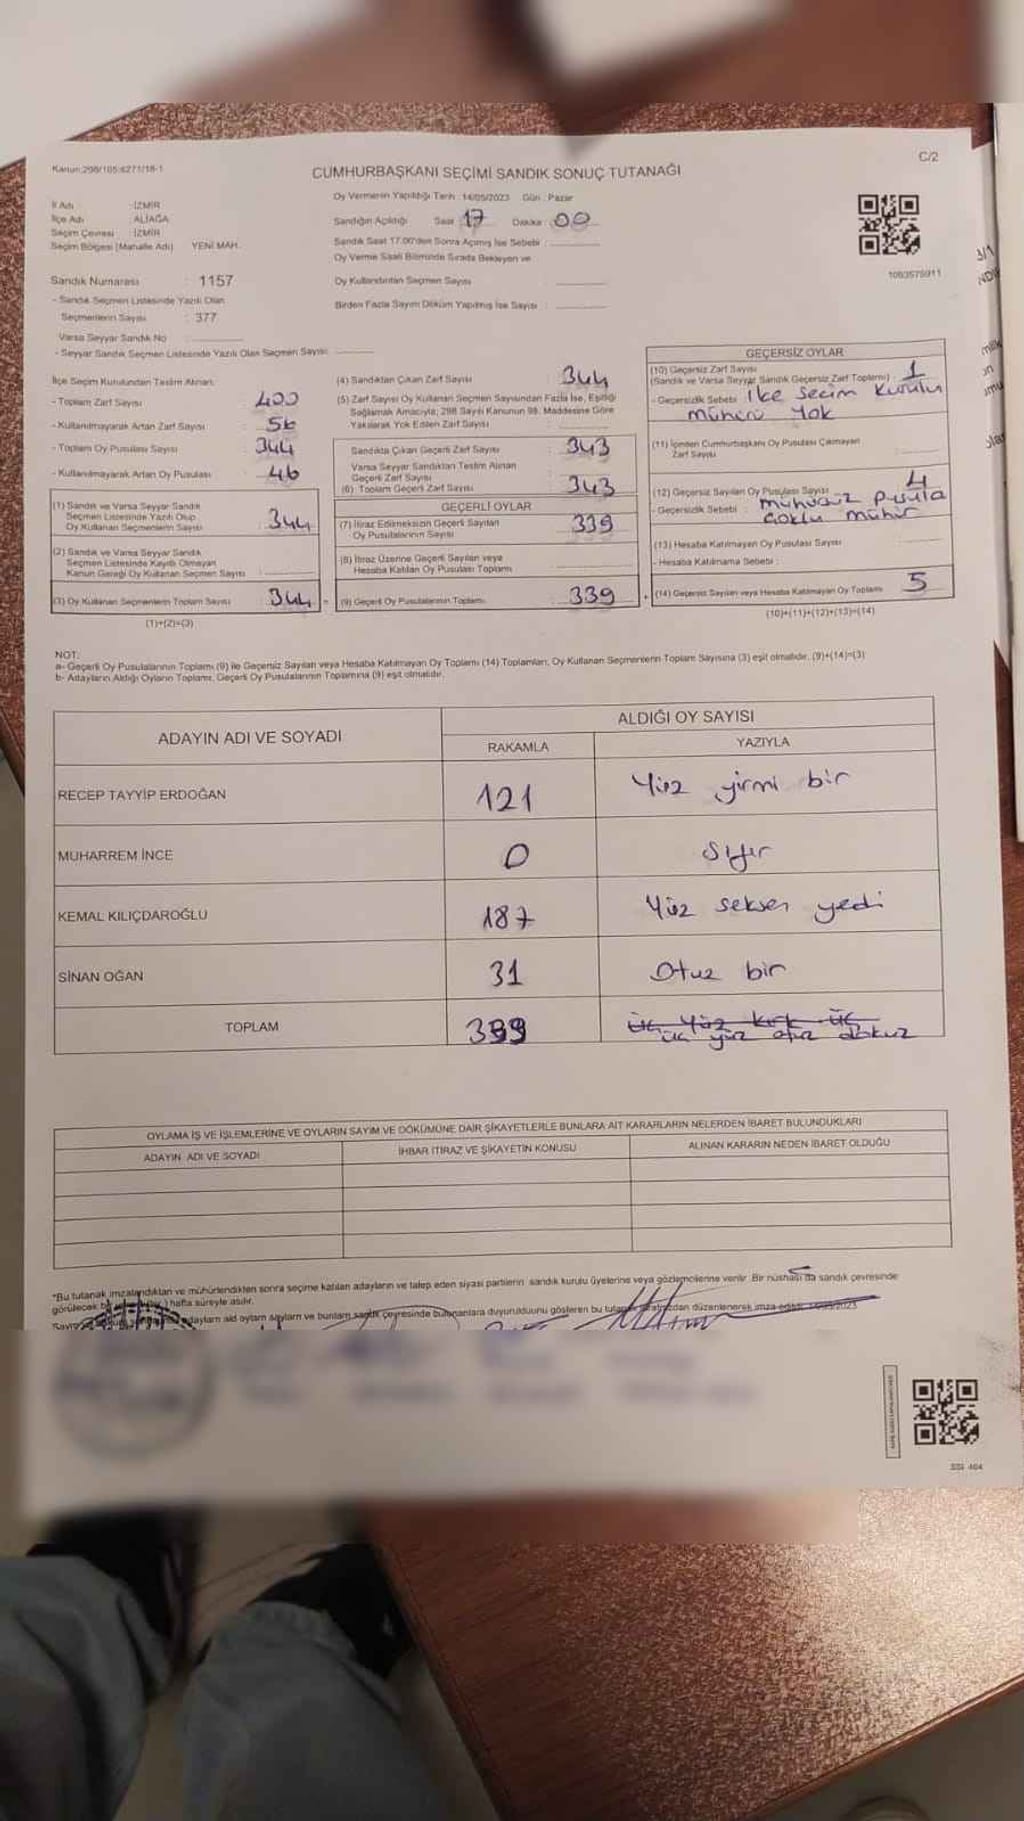 Kanun:298/105:6271/18-1
C/2
CUMHURBAŞKANI SEÇİMİ SANDIK SONUÇ TUTANAĞI
İl Adı : İZMİR
İlçe Adı : ALİAĞA
Seçim Çevresi : İZMİR
Seçim Bölgesi (Mahalle Adı) YENİ MAH.
Sandık Numarası : 1157
- Sandık Seçmen Listesinde Yazılı Olan
Seçmenlerin Sayısı : 377
Varsa Seyyar Sandık No :
- Seyyar Sandık Seçmen Listesinde Yazılı Olan Seçmen Sayısı :
Oy Vermenin Yapıldığı Tarih : 14/05/2023 Gün : Pazar
Sandığın Açıldığı Saat : 17 Dakika : 00
Sandık Saat 17.00'den Sonra Açılmış İse Sebebi :
Oy Verme Saati Bitiminde Sırada Bekleyen ve
Oy Kullandırılan Seçmen Sayısı :
Birden Fazla Sayım Döküm Yapılmış İse Sayısı :
1083575911
İlçe Seçim Kurulundan Teslim Alınan:
- Toplam Zarf Sayısı : 400
- Kullanılmayarak Artan Zarf Sayısı : 56
- Toplam Oy Pusulası Sayısı : 344
- Kullanılmayarak Artan Oy Pusulası : 46
(1) Sandık ve Varsa Seyyar Sandık
Seçmen Listesinde Yazılı Olup
Oy Kullanan Seçmenlerin Sayısı : 344
(2) Sandık ve Varsa Seyyar Sandık
Seçmen Listesinde Kayıtlı Olmayan
Kanun Gereği Oy Kullanan Seçmen Sayısı :
(3) Oy Kullanan Seçmenlerin Toplam Sayısı : 344 =
(1)+(2)=(3)
(4) Sandıktan Çıkan Zarf Sayısı : 344
(5) Zarf Sayısı Oy Kullanan Seçmen Sayısından Fazla İse, Eşitliği
Sağlamak Amacıyla, 298 Sayılı Kanunun 98. Maddesine Göre
Yakılarak Yok Edilen Zarf Sayısı :
Sandıkta Çıkan Geçerli Zarf Sayısı : 343
Varsa Seyyar Sandıktan Teslim Alınan
Geçerli Zarf Sayısı :
(6) Toplam Geçerli Zarf Sayısı : 343
GEÇERLİ OYLAR
(7) İtiraz Edilmeksizin Geçerli Sayılan
Oy Pusulalarının Sayısı : 339
(8) İtiraz Üzerine Geçerli Sayılan veya
Hesaba Katılan Oy Pusulası Toplamı :
(9) Geçerli Oy Pusulalarının Toplamı : 339 +
GEÇERSİZ OYLAR
(10) Geçersiz Zarf Sayısı
(Sandık ve Varsa Seyyar Sandık Geçersiz Zarf Toplamı) : 1
- Geçersizlik Sebebi : ilçe seçim kurulu
mührü yok
(11) İçinden Cumhurbaşkanı Oy Pusulası Çıkmayan
Zarf Sayısı :
(12) Geçersiz Sayılan Oy Pusulası Sayısı : 4
- Geçersizlik Sebebi : mühürsüz pusula
çoklu mühür
(13) Hesaba Katılmayan Oy Pusulası Sayısı :
- Hesaba Katılmama Sebebi :
(14) Geçersiz Sayılan veya Hesaba Katılmayan Oy Toplamı : 5
(10)+(11)+(12)+(13)=(14)
NOT:
a- Geçerli Oy Pusulalarının Toplamı (9) ile Geçersiz Sayılan veya Hesaba Katılmayan Oy Toplamı (14) Toplamları, Oy Kullanan Seçmenlerin Toplam Sayısına (3) eşit olmalıdır. (9)+(14)=(3)
b- Adayların Aldığı Oyların Toplamı, Geçerli Oy Pusulalarının Toplamına (9) eşit olmalıdır.
ADAYIN ADI VE SOYADI
ALDIĞI OY SAYISI
RAKAMLA YAZIYLA
RECEP TAYYİP ERDOĞAN 121 Yüz yirmi bir
MUHARREM İNCE 0 sıfır
KEMAL KILIÇDAROĞLU 187 Yüz seksen yedi
SİNAN OĞAN 31 Otuz bir
TOPLAM 339 üç yüz kırk üç
üç yüz otuz dokuz
OYLAMA İŞ VE İŞLEMLERİNE VE OYLARIN SAYIM VE DÖKÜMÜNE DAİR ŞİKAYETLERLE BUNLARA AİT KARARLARIN NELERDEN İBARET BULUNDUKLARI
ADAYIN ADI VE SOYADI İHBAR İTİRAZ VE ŞİKAYETİN KONUSU ALINAN KARARIN NEDEN İBARET OLDUĞU
*Bu tutanak imzalandıktan ve mühürlendikten sonra seçime katılan adayların ve talep eden siyasi partilerin sandık kurulu üyelerine veya gözlemcilerine verilir. Bir nüshası da sandık çevresinde
görülecek bir hafta süreyle asılır.
adayların ald oyların sayıların ve bunların sandık çevresinde bulunanlara duyurulduğunu gösteren bu tutanak tarafımızdan düzenlenerek imza edildi.
SSİ 464